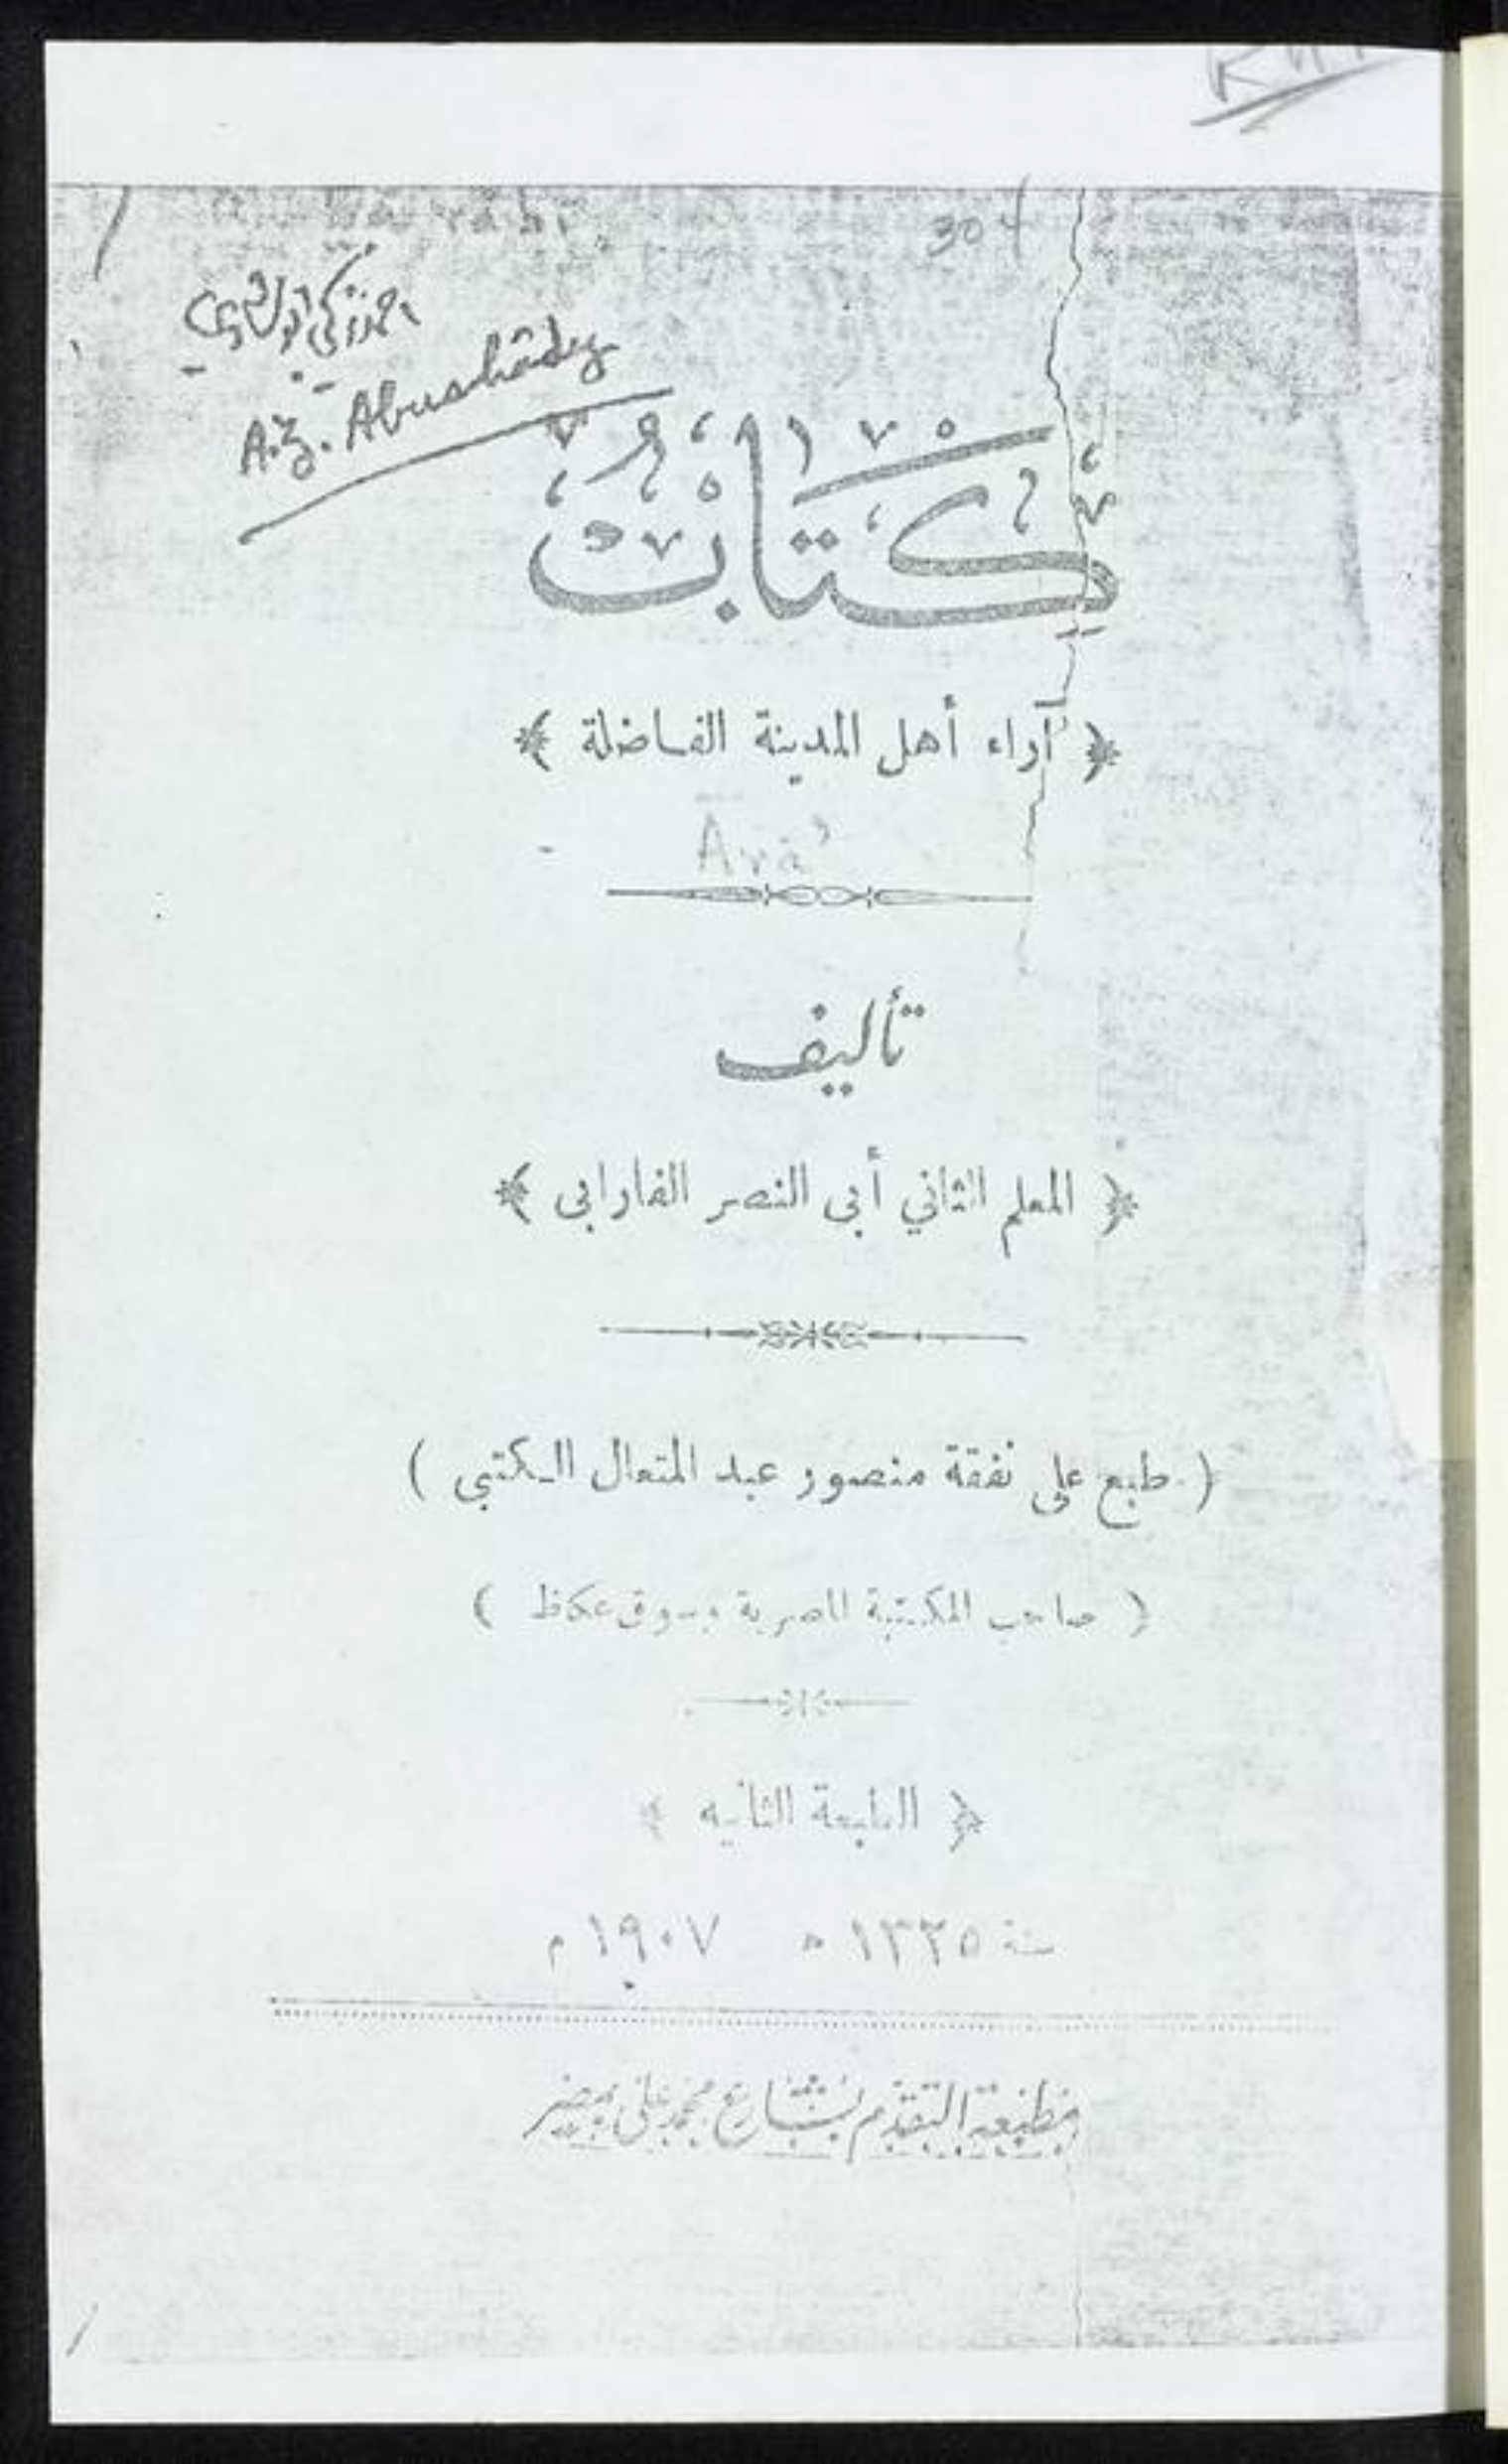 304
أحمد زكي أبو شادي
A. Z. Abushâdy
كتاب
﴿ آراء أهل المدينة الفاضلة ﴾
Ārā'
تأليف
﴿ المعلم الثاني أبى النصر الفارابى ﴾
( طبع على نفقة منصور عبد المتعال الكتبي )
( صاحب المكتبة المصرية بسوق عكاظ )
﴿ الطبعة الثانيه ﴾
سنة ١٣٢٥ ه ١٩٠٧ م
مطبعة التقدم بشارع محمد علي بمصر